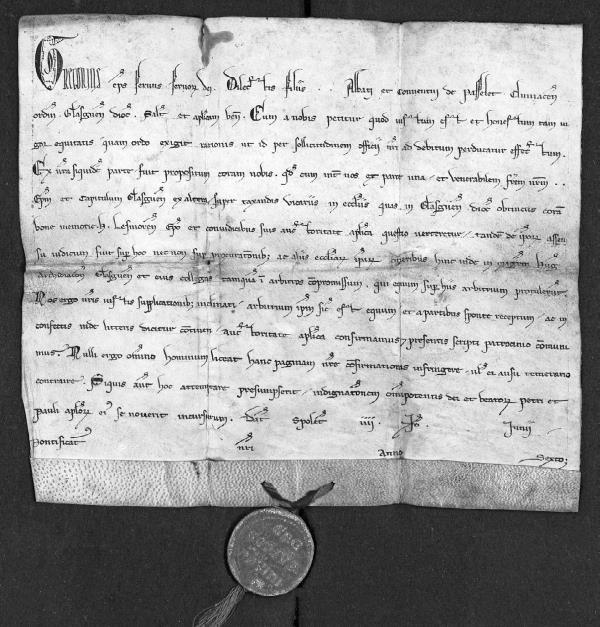 Gregorius ep̄s servus servor̄ dei. Dilectis filiis . . Abbati et conventui de Passelet Cluniacen̄
ordin̄ Glasguen̄ dioc̄. Salt̄ et aplicam ben̄. Cum a nobis petitur quod iustum est et honestum tam vi
gor equitatis quam ordo exigit rationis ut id per sollicitudinem officii nr̄i ad debitum perducatur effectum.
Ex vr̄a siquidem parte fuit propositum coram nobis. qd̄ cum int̄ vos ex parte una. et venerabilem frēm nr̄m . .
Ep̄m et Capitulum Glasguen̄ ex altera super taxandis vicariis in ecclīis quas in Glasguen̄ dioc̄ obtinetis corā
bone memorie H. Lesmoren̄ Ep̄o et coniudicibus suis auctoritate aplica questio verteretur. tandē de ipsor̄ assen
su iudicum fuit super hoc nec non super procurationib; ac aliis ecclīar̄ ipsar̄ hinc inde in magistrum
archidiacon̄ Glasguen̄ et eius collegas tamquā in arbitros compromissum. qui equum super hiis arbitrium protulerunt.
Nos ergo vr̄is iustis supplicationib; inclinati. arbitrium ip̄m sic̄ est equum et a partibus sponte receptum. ac in
confectis inde litteris dicitur contineri. auctoritate aplica confirmamus et presentis scripti patrocinio communi
mus. Nulli ergo omnino hominum liceat hanc paginam nr̄e confirmationis infringere. vl̄ ei ausu temerario
contraire. Siquis aut̄ hoc attemptare presumpserit. indignationem omnipotentis dei et beator̄ petri et
pauli aplor̄ eius se noverit incursurum. Dat̄ Spolet̄ iiii . Id̄ . Iunii
Pontificat̄ nr̄i Anno Sexto;